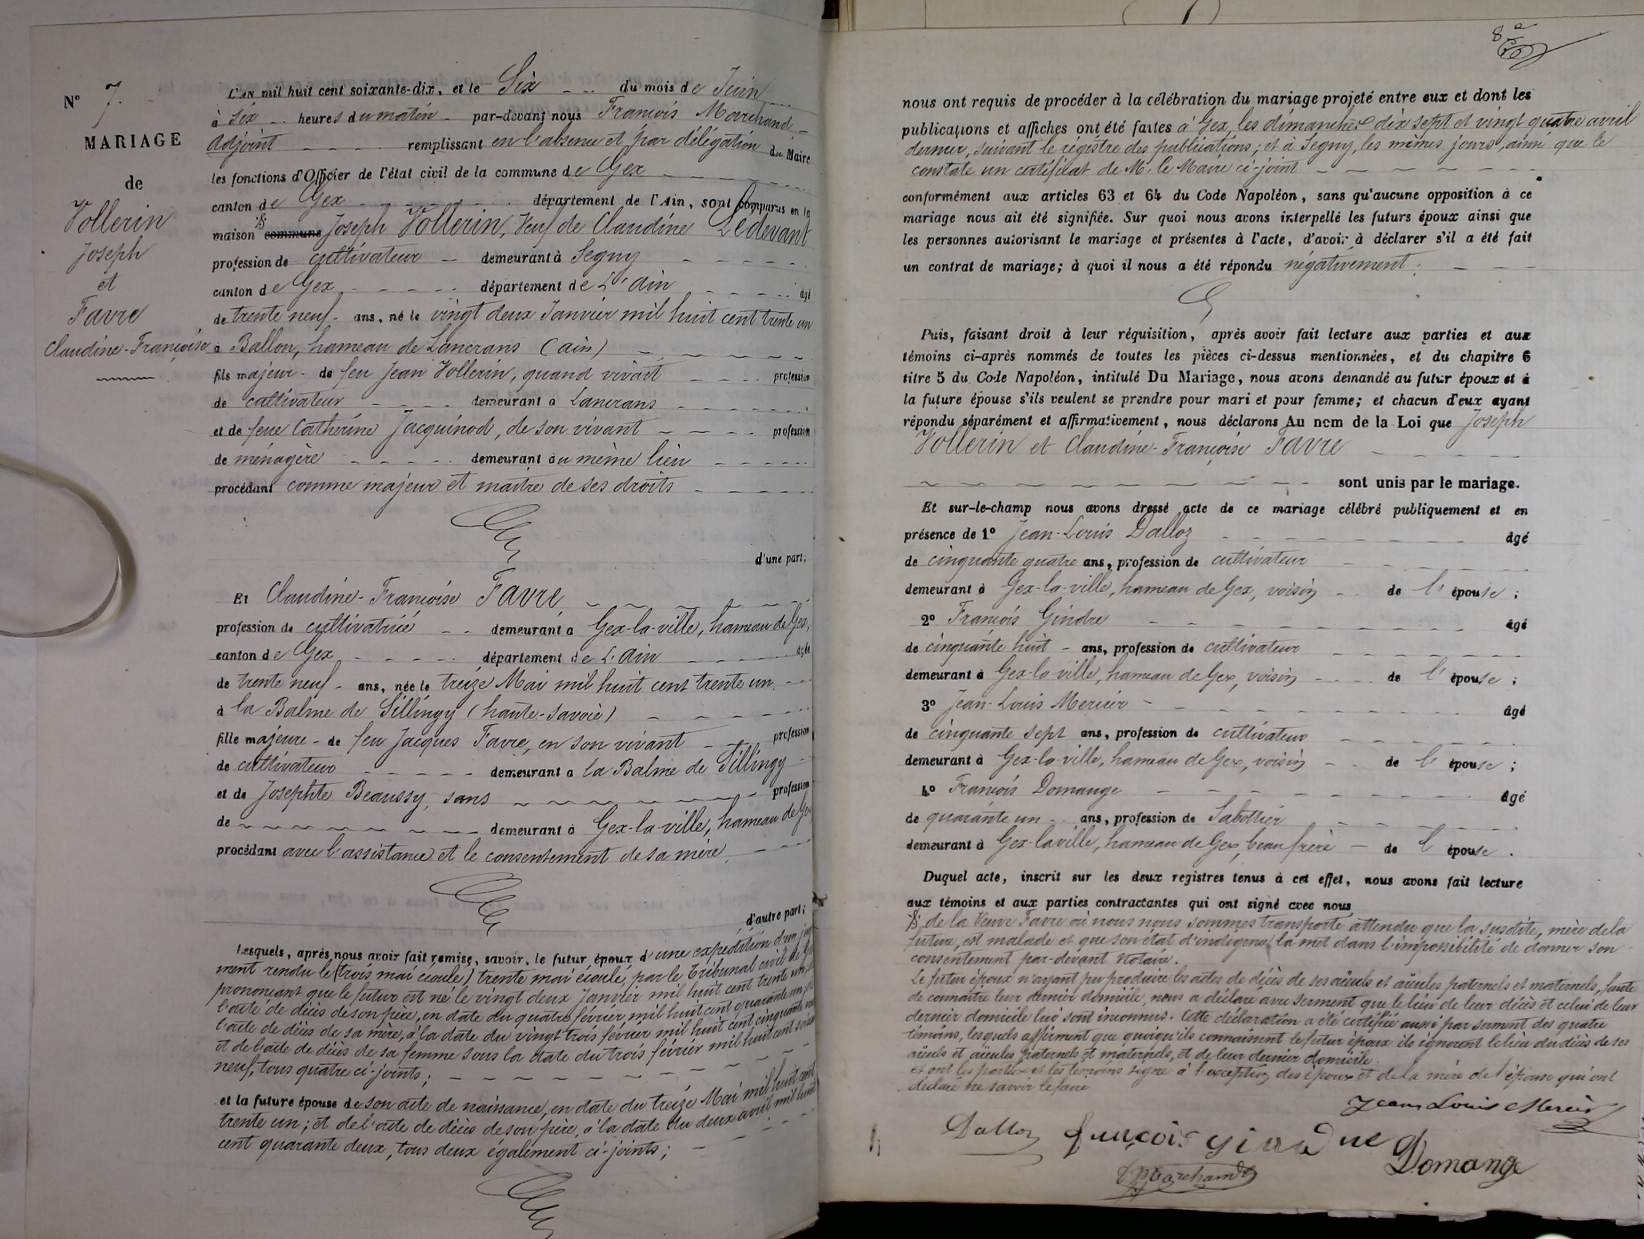 N° 7.
MARIAGE
de
Vollerin
Joseph
et
Favre
Claudine-Françoise
L'AN mil huit cent soixante-dix, et le Six du mois de Juin
à six heures du matin par-devant nous François Marchand
adjoint remplissant en l'absence et par délégation du Maire
les fonctions d'Officier de l'état civil de la commune de Gex
canton de Gex département de l'Ain, sont comparus en la
maison commune Joseph Vollerin, Veuf de Claudine Ledevant
profession de cultivateur demeurant à Segny
canton de Gex département de L'ain âgé
de trente neuf ans, né le vingt deux Janvier mil huit cent trente un
à Ballon, hameau de Lancrans (ain)
fils majeur de feu Jean Vollerin, quand vivait profession
de cultivateur demeurant à Lancrans
et de feue Catherine Jacquinod, de son vivant profession
de ménagère demeurant au même lieu
procédant comme majeur et maître de ses droits
d'une part;
Et Claudine-Françoise Favre
profession de cultivatrice demeurant à Gex-la-ville, hameau de Gex,
canton de Gex département de L'ain âgée
de trente neuf ans, née le treize Mai mil huit cent trente un
à la Balme de Sillingy (haute-Savoie)
fille majeure de feu Jacques Favre, en son vivant profession
de cultivateur demeurant à la Balme de Sillingy
et de Josephte Beaussy, sans profession
de demeurant à Gex-la-ville, hameau de Gex
procédant avec l'assistance et le consentement de sa mère
d'autre part;
Lesquels, après nous avoir fait remise, savoir, le futur époux d'une expédition d'un
ment rendu le (trois mai écoulé) trente mai écoulé, par le Tribunal civil de
prononçant que le futur est né le vingt deux Janvier mil huit cent trente un,
l'acte de décès de son père, en date du quatre février mil huit cent quarante un,
l'acte de décès de sa mère, à la date du vingt trois février mil huit cent cinquante
et de l'acte de décès de sa femme sous la date du trois février mil huit cent
neuf, tous quatre ci-joints;
et la future épouse de son acte de naissance, en date du treize Mai mil huit cent
trente un; et de l'acte de décès de son père, à la date du deux avril mil huit
cent quarante deux, tous deux également ci-joints;
8
nous ont requis de procéder à la célébration du mariage projeté entre eux et dont les
publications et affiches ont été faites à Gex, les dimanches dix sept et vingt quatre avril
dernier, suivant le registre des publications; et à Segny, les mêmes jours, ainsi que le
constate un certificat de Mr. le Maire ci-joint
conformément aux articles 63 et 64 du Code Napoléon, sans qu'aucune opposition à ce
mariage nous ait été signifiée. Sur quoi nous avons interpellé les futurs époux ainsi que
les personnes autorisant le mariage et présentes à l'acte, d'avoir à déclarer s'il a été fait
un contrat de mariage; à quoi il nous a été répondu négativement.
Puis, faisant droit à leur réquisition, après avoir fait lecture aux parties et aux
témoins ci-après nommés de toutes les pièces ci-dessus mentionnées, et du chapitre 6
titre 5 du Code Napoléon, intitulé Du Mariage, nous avons demandé au futur époux et à
la future épouse s'ils veulent se prendre pour mari et pour femme; et chacun d'eux ayant
répondu séparément et affirmativement, nous déclarons Au nom de la Loi que Joseph
Vollerin et Claudine-Françoise Favre
sont unis par le mariage.
Et sur-le-champ nous avons dressé acte de ce mariage célébré publiquement et en
présence de 1° Jean-Louis Dalloz âgé
de cinquante quatre ans, profession de cultivateur
demeurant à Gex-la-ville, hameau de Gex, voisin de l'épouse;
2° François Gindre âgé
de cinquante huit ans, profession de cultivateur
demeurant à Gex-la-ville, hameau de Gex, voisin de l'épouse;
3° Jean-Louis Mercier âgé
de cinquante sept ans, profession de cultivateur
demeurant à Gex-la-ville, hameau de Gex, voisin de l'épouse;
4° François Domange âgé
de quarante un ans, profession de Sabottier
demeurant à Gex-la-ville, hameau de Gex, beau frère de l'épouse.
Duquel acte, inscrit sur les deux registres tenus à cet effet, nous avons fait lecture
aux témoins et aux parties contractantes qui ont signé avec nous
de la Veuve Favre où nous nous sommes transporté attendu que la susdite, mère de la
future, est malade et que son état d'indigence la met dans l'impossibilité de donner son
consentement par-devant Notaire.
Le futur époux n'ayant pu produire les actes de décès de ses aïeuls et aïeules paternels et maternels, faute
de connaître leur dernier domicile, nous a déclaré avec serment que le lieu de leur décès et celui de leur
dernier domicile lui sont inconnus. Cette déclaration a été certifiée aussi par serment des quatre
témoins, lesquels affirment que quoiqu'ils connaissent le futur époux ils ignorent le lieu du décès de ses
aïeuls et aïeules paternels et maternels, et de leur dernier domicile.
et ont les parties et les témoins signé à l'exception des époux et de la mère de l'épouse qui ont
déclaré ne savoir le faire
Jean Louis Mercier
Dalloz françois gindre Domange
Marchand